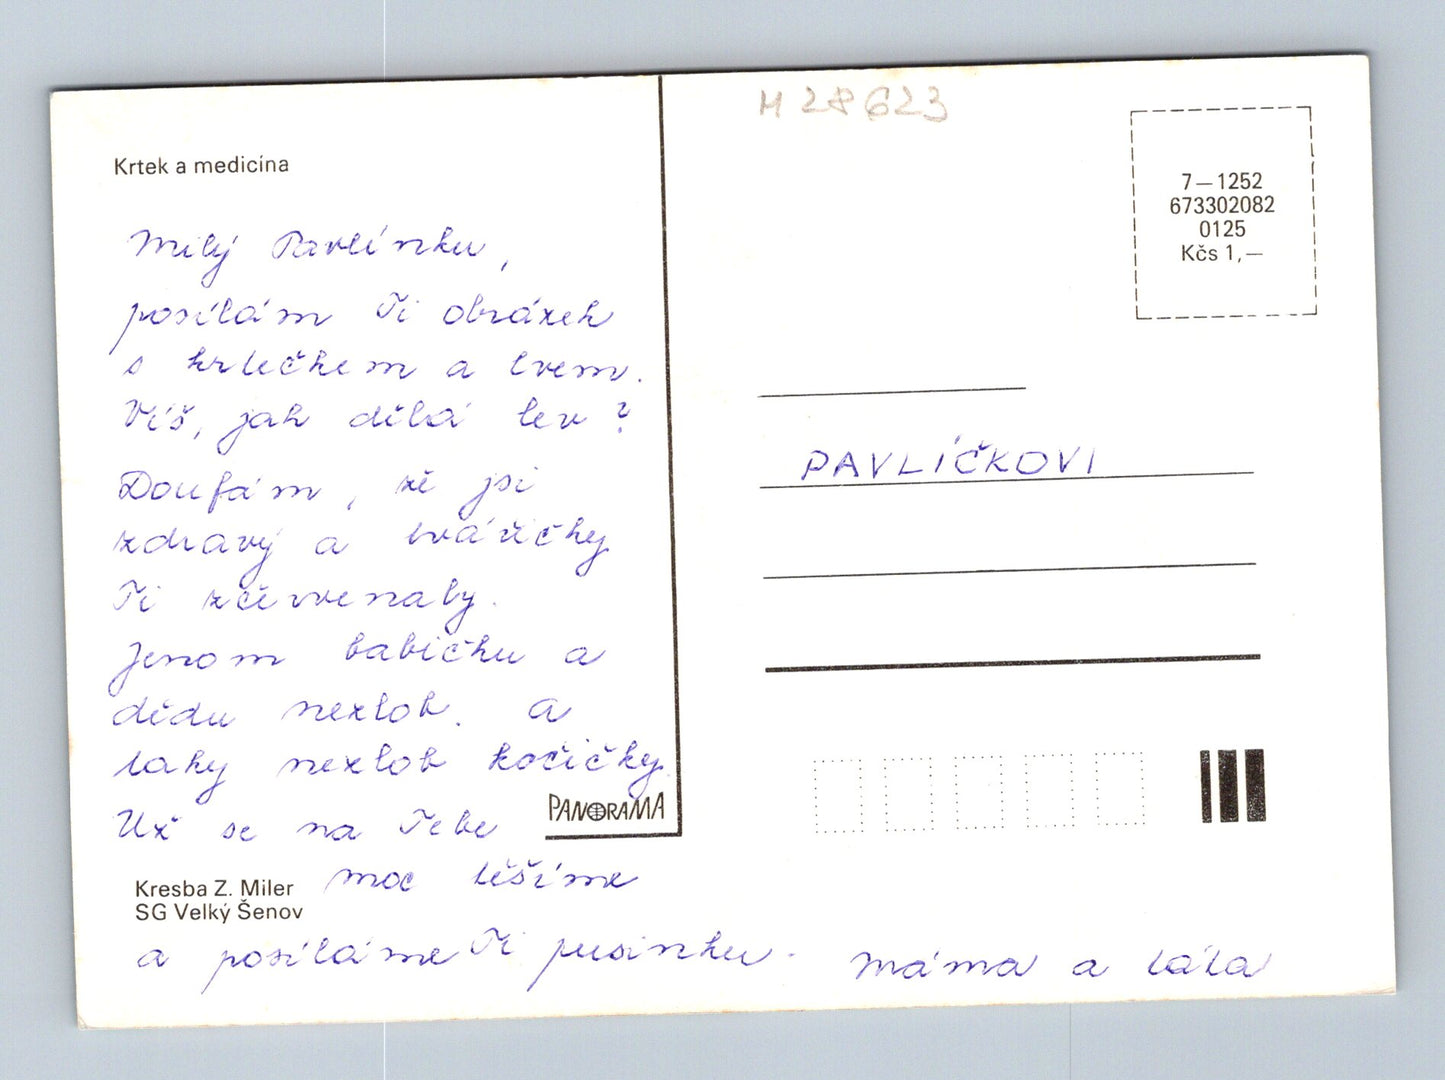 Krtek a medicína
Milý Pavlínku,
posílám Ti obrázek
s krtečkem a lvem.
Víš, jak dělá lev?
Doufám, že jsi
zdravý a tvářičky
Ti zčervenaly.
Jenom babičku a
dědu nezlob. A
taky nezlob kočičky.
Už se na Tebe
moc těšíme
a posíláme Ti pusinku. máma a táta
PANORAMA
Kresba Z. Miler
SG Velký Šenov
M 28623
7–1252
673302082
0125
Kčs 1,—
PAVLÍČKOVI